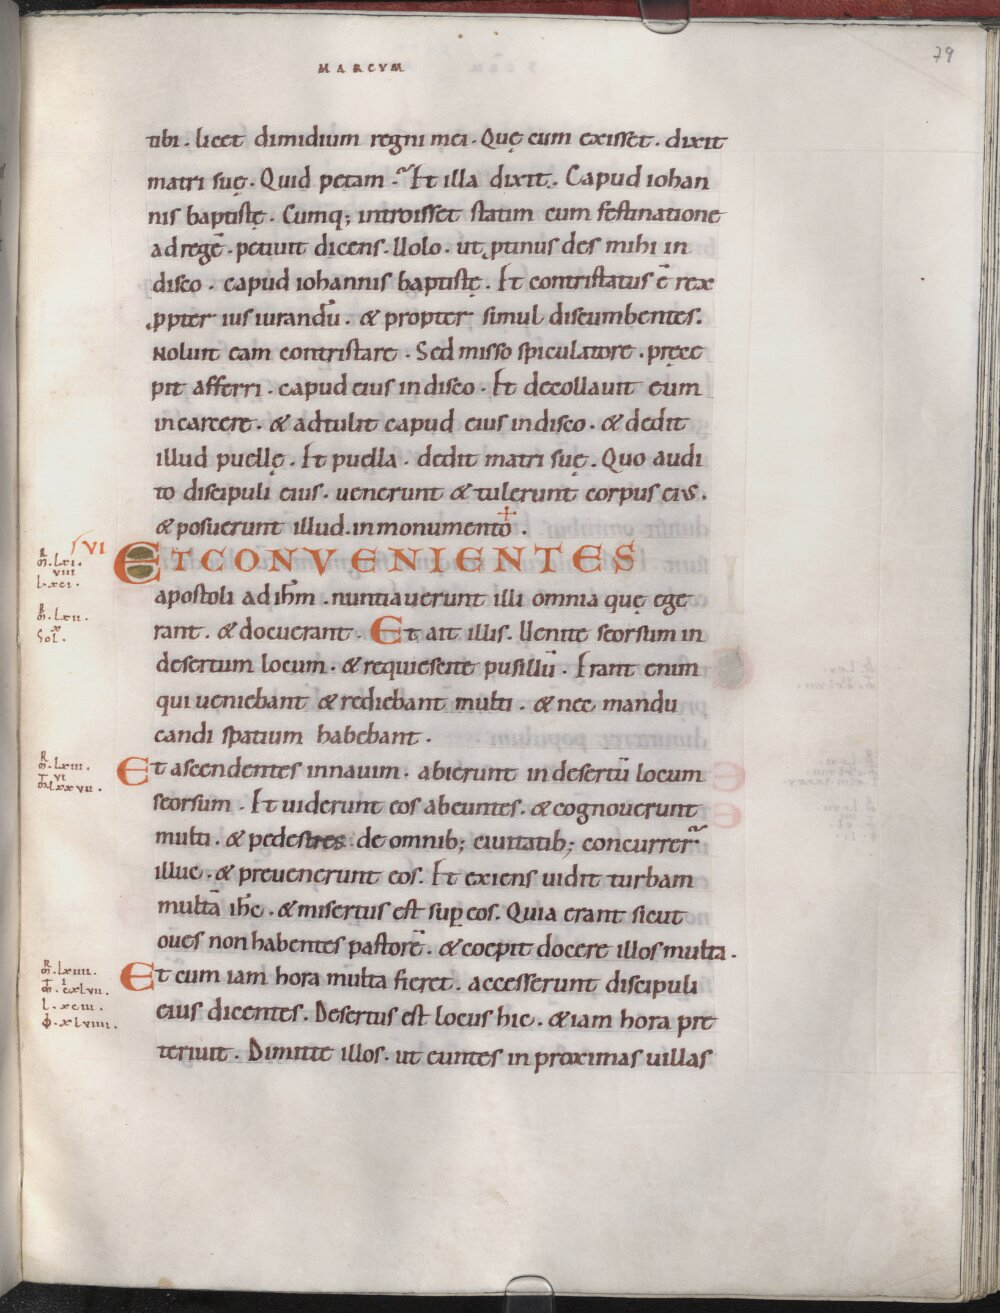 MARCVM
79
tibi. licet dimidium regni mei. Quę cum exisset. dixit
matri suę. Quid petam? Et illa dixit. Capud iohan
nis baptistę. Cumq; introisset statim cum festinatione
ad regē. petiuit dicens. Uolo. ut ꝓtinus des mihi in
disco. capud iohannis baptistę. Et contristatus ē rex
ꝓpter ius iurandū. & propter simul discumbentes.
Noluit eam contristare. Sed misso spiculatore. pręce
pit afferri. capud eius in disco. Et decollauit eum
in carcere. & adtulit capud eius in disco. & dedit
illud puellę. Et puella. dedit matri suę. Quo audi
to discipuli eius. uenerunt & tulerunt corpus eius.
& posuerunt illud. in monumento.
VI
ET CONVENIENTES
apostoli ad ihm̄. nuntiauerunt illi omnia quę ege
rant. & docuerant. Et ait illis. Uenite seorsum in
desertum locum. & requiescite pusillū. Erant enim
qui ueniebant & rediebant multi. & nec mandu
candi spatium habebant.
Et ascendentes in nauim. abierunt in desertū locum
seorsum. Et uiderunt eos abeuntes. & cognouerunt
multi. & pedestres de omnib; ciuitatib; concurrer̄
illuc. & preuenerunt eos. Et exiens uidit turbam
multā ihc̄. & misertus est suꝑ eos. Quia erant sicut
oues non habentes pastorē. & coepit docere illos multa.
Et cum iam hora multa fieret. accesserunt discipuli
eius dicentes. Desertus est locus hic. & iam hora pre
teriuit. Dimitte illos. ut euntes in proximas uillas
lxi.
viii
l. xci.
lxii.
x
Sol.
lxiii.
vi
lxxvii.
lxiiii.
cxlvii.
l. xciii.
xlviiii.